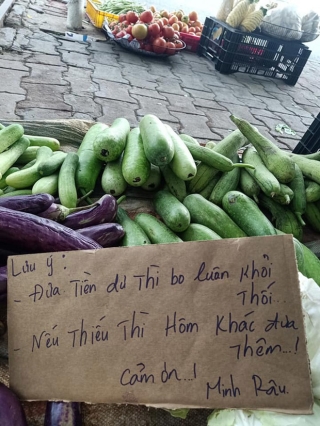 Lưu ý:
- Đưa Tiền dư Thì bo luân khỏi
Thối...
- Nếu Thiếu Thì Hôm Khác đưa
Thêm...!
Cảm ơn...!
Minh Râu.